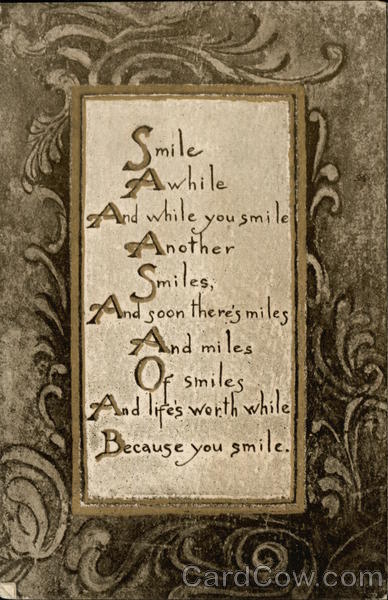 Smile
Awhile
And while you smile
Another
Smiles,
And soon there's miles
And miles
Of smiles
And life's worth while
Because you smile.
CardCow.com